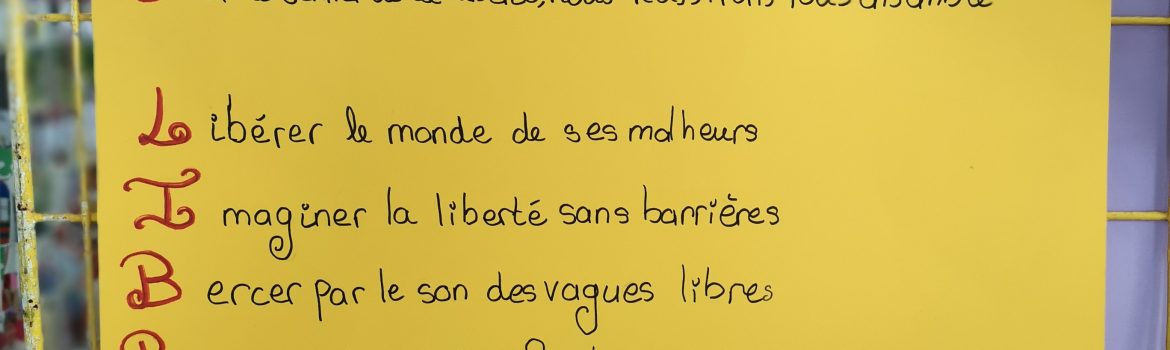 nous réussirons tous ensemble
Libérer le monde de ses malheurs
Imaginer la liberté sans barrières
Bercer par le son des vagues libres